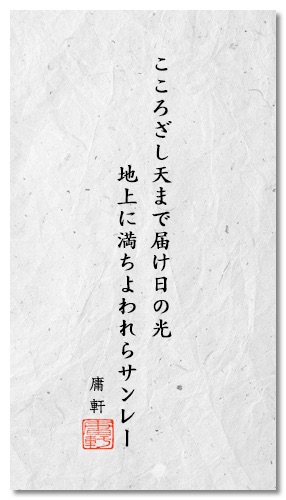 こころざし天まで届け日の光
地上に満ちよわれらサンレー
庸軒
庸軒